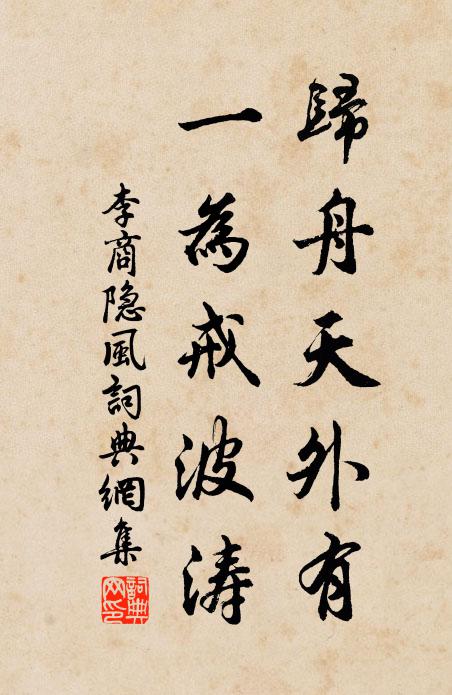 歸舟天外有
一為戒波涛
李商隐風詞典網集
詞典
网印